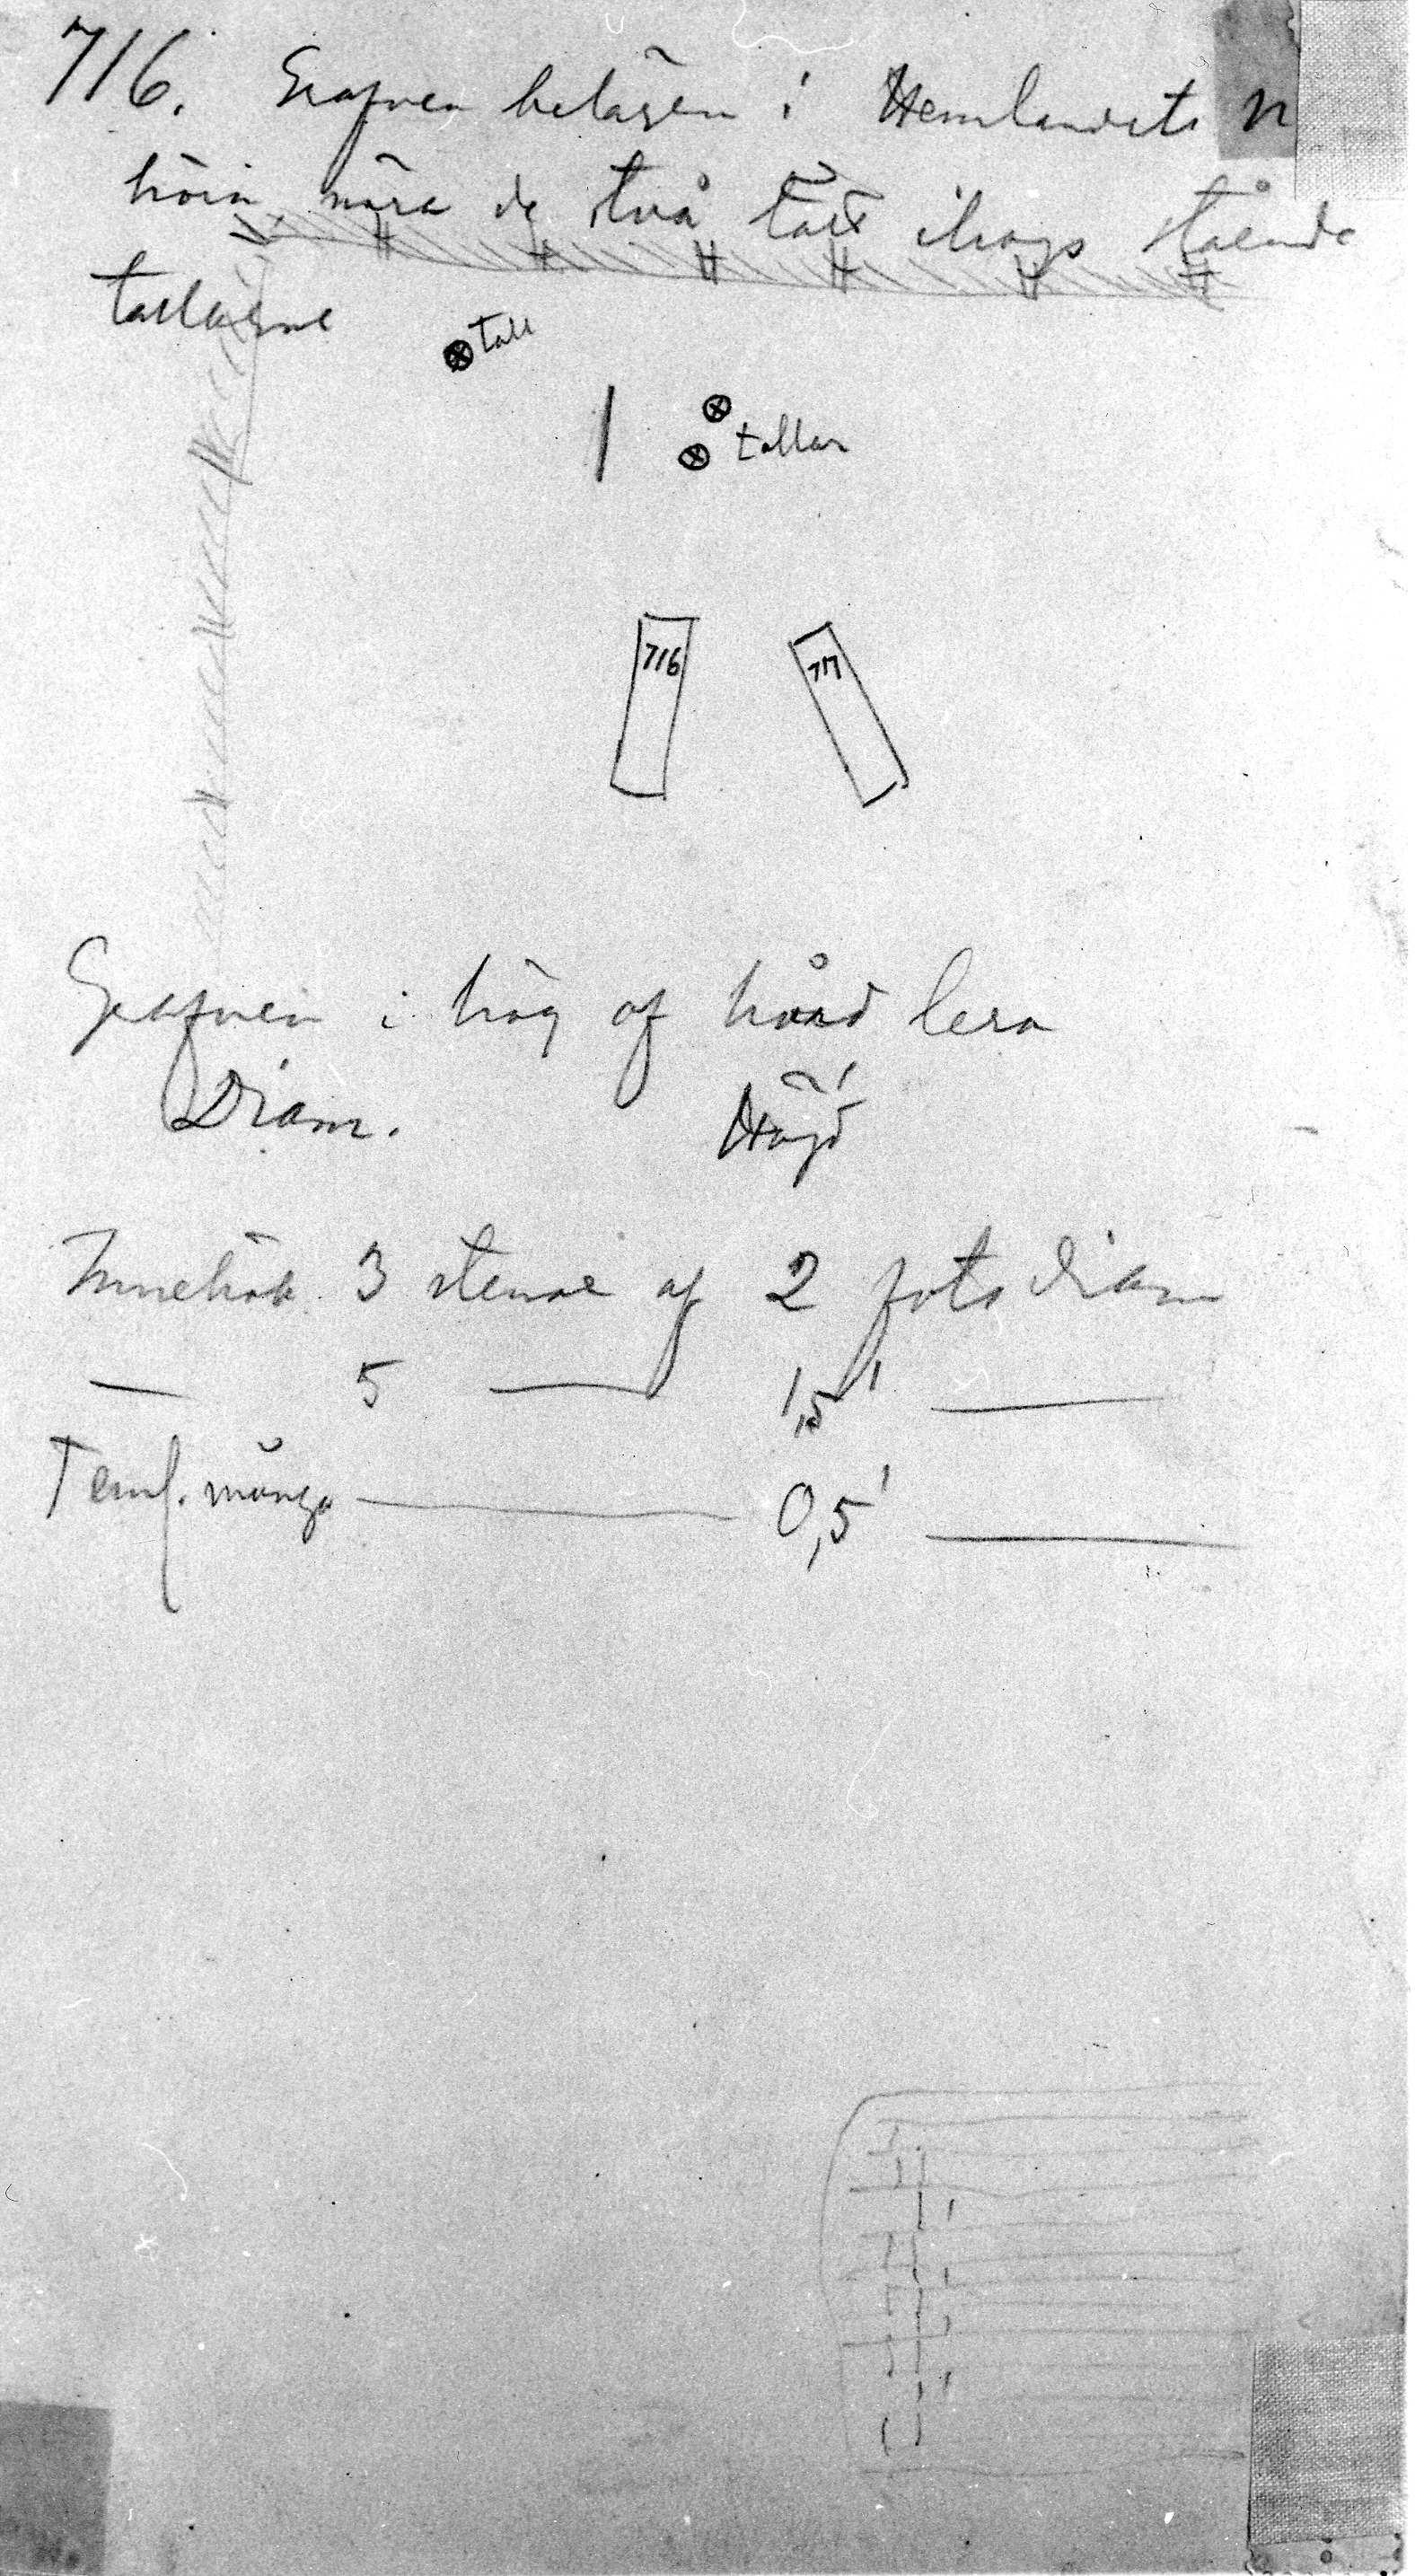 716. Grafven belägen i Hemlandets N
hörn nära de två tätt ihops stående
tallarne
tall
tallar
716
717
Grafven i hög af hård lera
Diam. Höjd
Innehöll 3 stenar af 2 fots diam
— 5 — 1,5' —
Teml. många — 0,5' —